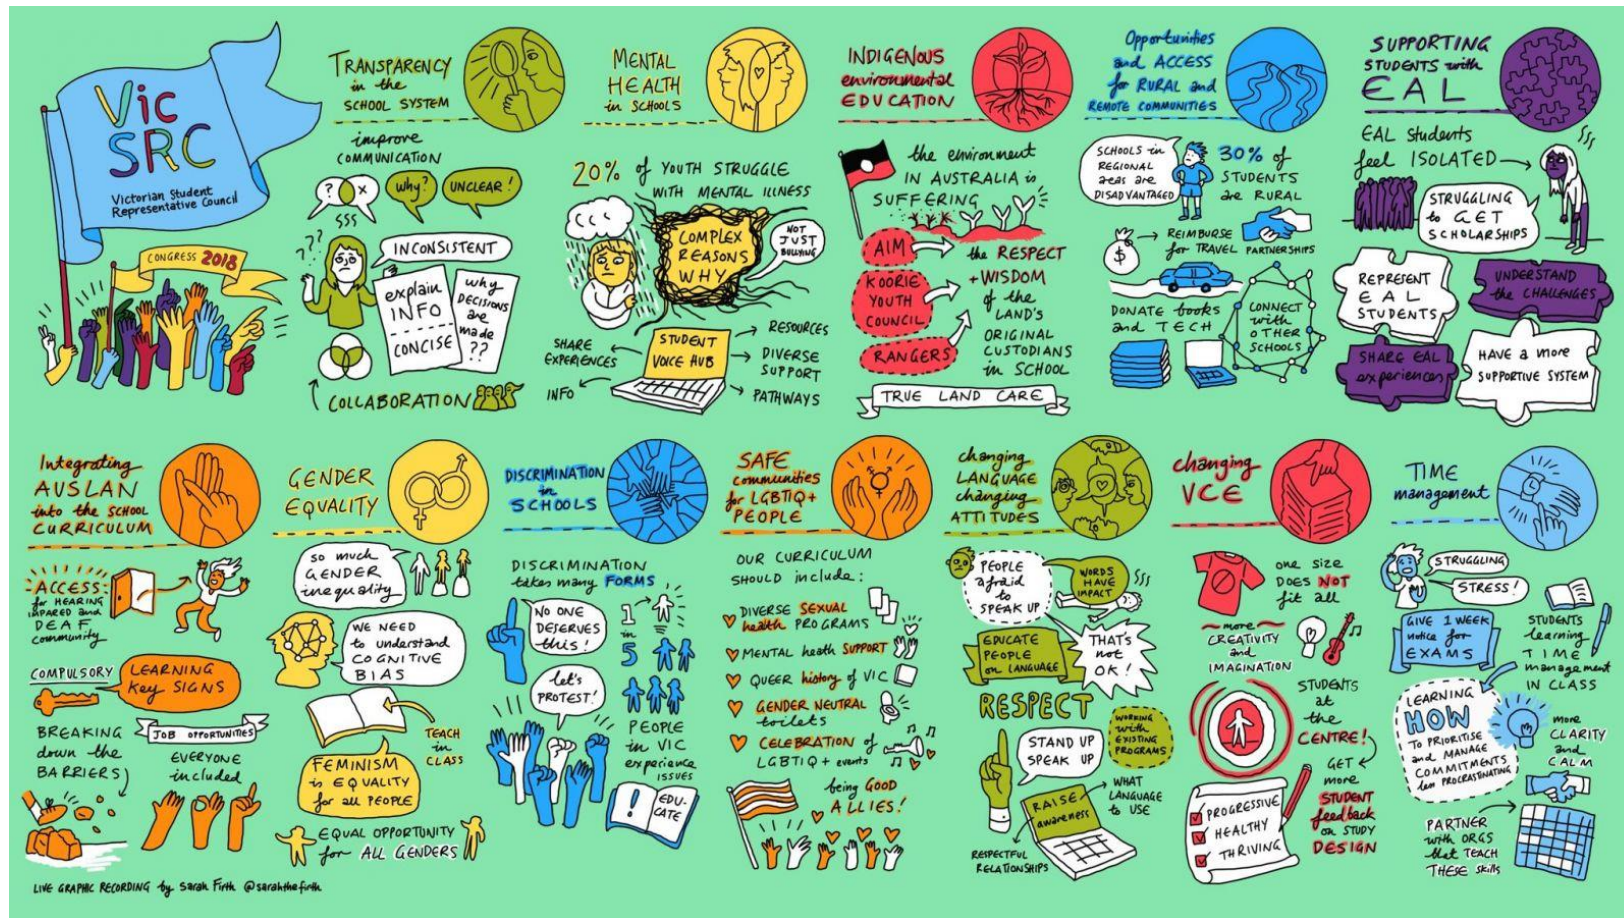 Vic
SRC
Victorian Student
Representative Council
CONGRESS 2018
TRANSPARENCY
in the
SCHOOL SYSTEM
improve
COMMUNICATION
? X
why?
UNCLEAR!
???
INCONSISTENT
explain
INFO
CONCISE
why
DECISIONS
are
made
??
COLLABORATION
MENTAL
HEALTH
in SCHOOLS
20% of YOUTH STRUGGLE
WITH MENTAL ILLNESS
COMPLEX
REASONS
WHY
NOT
JUST
BULLYING
STUDENT
VOICE HUB
SHARE
EXPERIENCES
INFO
RESOURCES
DIVERSE
SUPPORT
PATHWAYS
INDIGENOUS
environmental
EDUCATION
the environment
IN AUSTRALIA is
SUFFERING
AIM
KOORIE
YOUTH
COUNCIL
RANGERS
the RESPECT
+ WISDOM
of the
LAND'S
ORIGINAL
CUSTODIANS
in SCHOOL
TRUE LAND CARE
Opportunities
and ACCESS
for RURAL and
REMOTE COMMUNITIES
SCHOOLS in
REGIONAL
areas are
DISADVANTAGED
30% of
STUDENTS
are RURAL
$
REIMBURSE
for TRAVEL
PARTNERSHIPS
DONATE books
and TECH
CONNECT
with
OTHER
SCHOOLS
SUPPORTING
STUDENTS with
EAL
EAL students
feel ISOLATED
STRUGGLING
to GET
SCHOLARSHIPS
REPRESENT
EAL
STUDENTS
UNDERSTAND
the CHALLENGES
SHARE EAL
experiences
HAVE a more
SUPPORTIVE SYSTEM
Integrating
AUSLAN
into the SCHOOL
CURRICULUM
ACCESS:
for HEARING
IMPARED and
DEAF
community
COMPULSORY
LEARNING
Key SIGNS
BREAKING
down the
BARRIERS
JOB OPPORTUNITIES
EVERYONE
included
GENDER
EQUALITY
so much
GENDER
inequality
WE NEED
to understand
COGNITIVE
BIAS
TEACH
in
CLASS
FEMINISM
is EQUALITY
for all PEOPLE
EQUAL OPPORTUNITY
for ALL GENDERS
DISCRIMINATION
in
SCHOOLS
DISCRIMINATION
takes many FORMS
NO ONE
DESERVES
this!
let's
PROTEST!
1
in
5
PEOPLE
in VIC
experience
ISSUES
!
EDU-
CATE
SAFE
communities
for LGBTIQ+
PEOPLE
OUR CURRICULUM
SHOULD include:
DIVERSE SEXUAL
health PROGRAMS
MENTAL heath SUPPORT
QUEER history of VIC
GENDER NEUTRAL
toilets
CELEBRATION of
LGBTIQ+ events
being GOOD
ALLIES!
changing
LANGUAGE
changing
ATTITUDES
PEOPLE
afraid
to
SPEAK UP
WORDS
HAVE
IMPACT
EDUCATE
PEOPLE
on LANGUAGE
THAT'S
not
OK!
RESPECT
STAND UP
SPEAK UP
WORKING
with
EXISTING
PROGRAMS
RAISE
awareness
WHAT
LANGUAGE
to USE
RESPECTFUL
RELATIONSHIPS
changing
VCE
one size
DOES NOT
fit all
more
CREATIVITY
and
IMAGINATION
STUDENTS
at
the
CENTRE!
GET
more
STUDENT
feedback
on STUDY
DESIGN
PROGRESSIVE
HEALTHY
THRIVING
TIME
management
STRUGGLING
STRESS!
GIVE 1 WEEK
notice for
EXAMS
STUDENTS
learning
TIME
management
IN CLASS
LEARNING
HOW
TO PRIORITISE
and MANAGE
COMMITMENTS
less PROCRASTINATING
more
CLARITY
and
CALM
PARTNER
with ORGS
that TEACH
THESE skills
LIVE GRAPHIC RECORDING by Sarah Firth @sarahthefirth